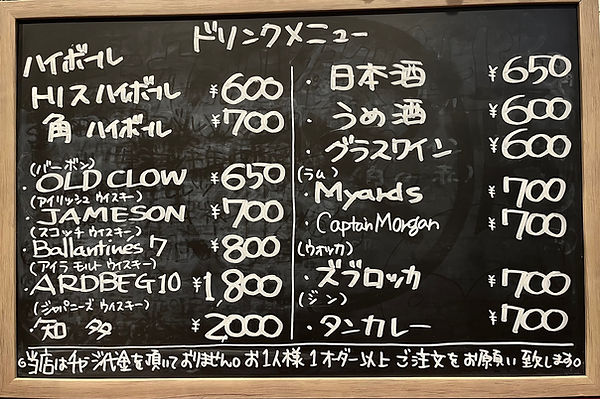 ドリンクメニュー
ハイボール
HIスハイボール ¥600
角 ハイボール ¥700
(バーボン)
・OLD CLOW ¥650
(アイリッシュ ウイスキー)
・JAMESON ¥700
(スコッチ ウイスキー)
・Ballantines 7 ¥800
(アイラ モルト ウイスキー)
・ARDBEG 10 ¥1,800
(ジャパニーズ ウイスキー)
・知 多 ¥2000
・日本酒 ¥650
・うめ酒 ¥600
・グラスワイン ¥600
(ラム)
・Myards ¥700
・Captan Morgan ¥700
(ウォッカ)
・ズブロッカ ¥700
(ジン)
・タンカレー ¥700
当店はチャージ代金を頂いておりません。お1人様1オーダー以上ご注文をお願い致します。